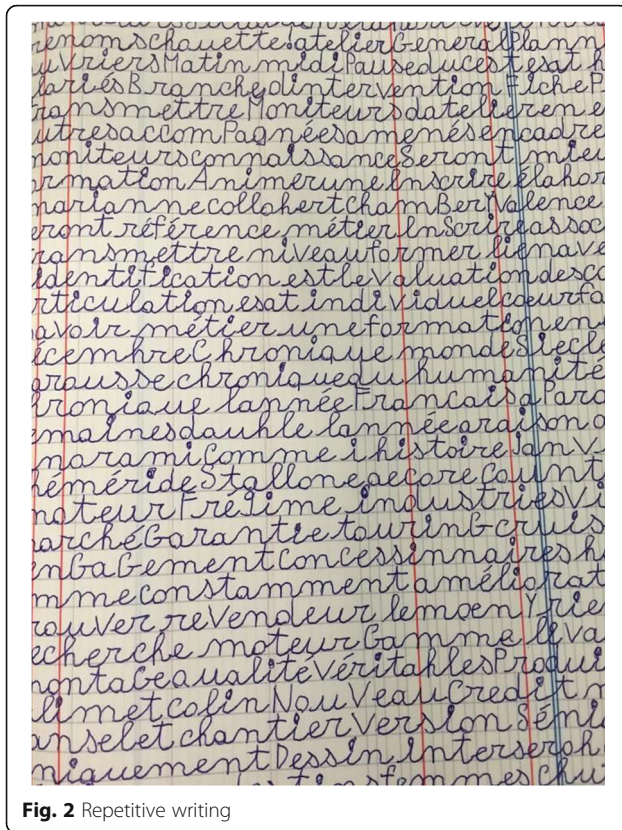 renomschauettelatelierGeneralPlann
uvriersMatinmidiPauseducestesath
lariésBranchedinterventionFicheP
ransmettreMoniteursdatelierene
utresaccomPagnéesamenésencadre
moniteursconnaissanceSerontmieu
rmationAnimeruneInscrireélahor
mariannecollohertchamBeryvalence
erontréférence métierInscrireassoc
ransmettreniveauformerliénave
identificationestlevaluationdesco
rticulationesatindividuelcoeurfa
avoir métieruneformationen
écembreChronique mondeSiecle
araussechroniqueduhumanité
hroniquelannéeFrancaisaParo
emainesdauhlelannéearaisono
maramiComme ihistoireJanV
héméride StallonepecoreCount
moteurFréJimeindustriesVi
archéGarantietourinGcruis
enGaGementConcessinnairesh
mmeconstammentaméliorat
rouverreVendeurlemoenYrie
echerche moteurGammelleva
montaGequalitéVéritahlesProdui
limetcolinNouVeauCredit m
anseletchantierVersionSéni
niquementDessininterseroh
femmeschu
Fig. 2 Repetitive writing